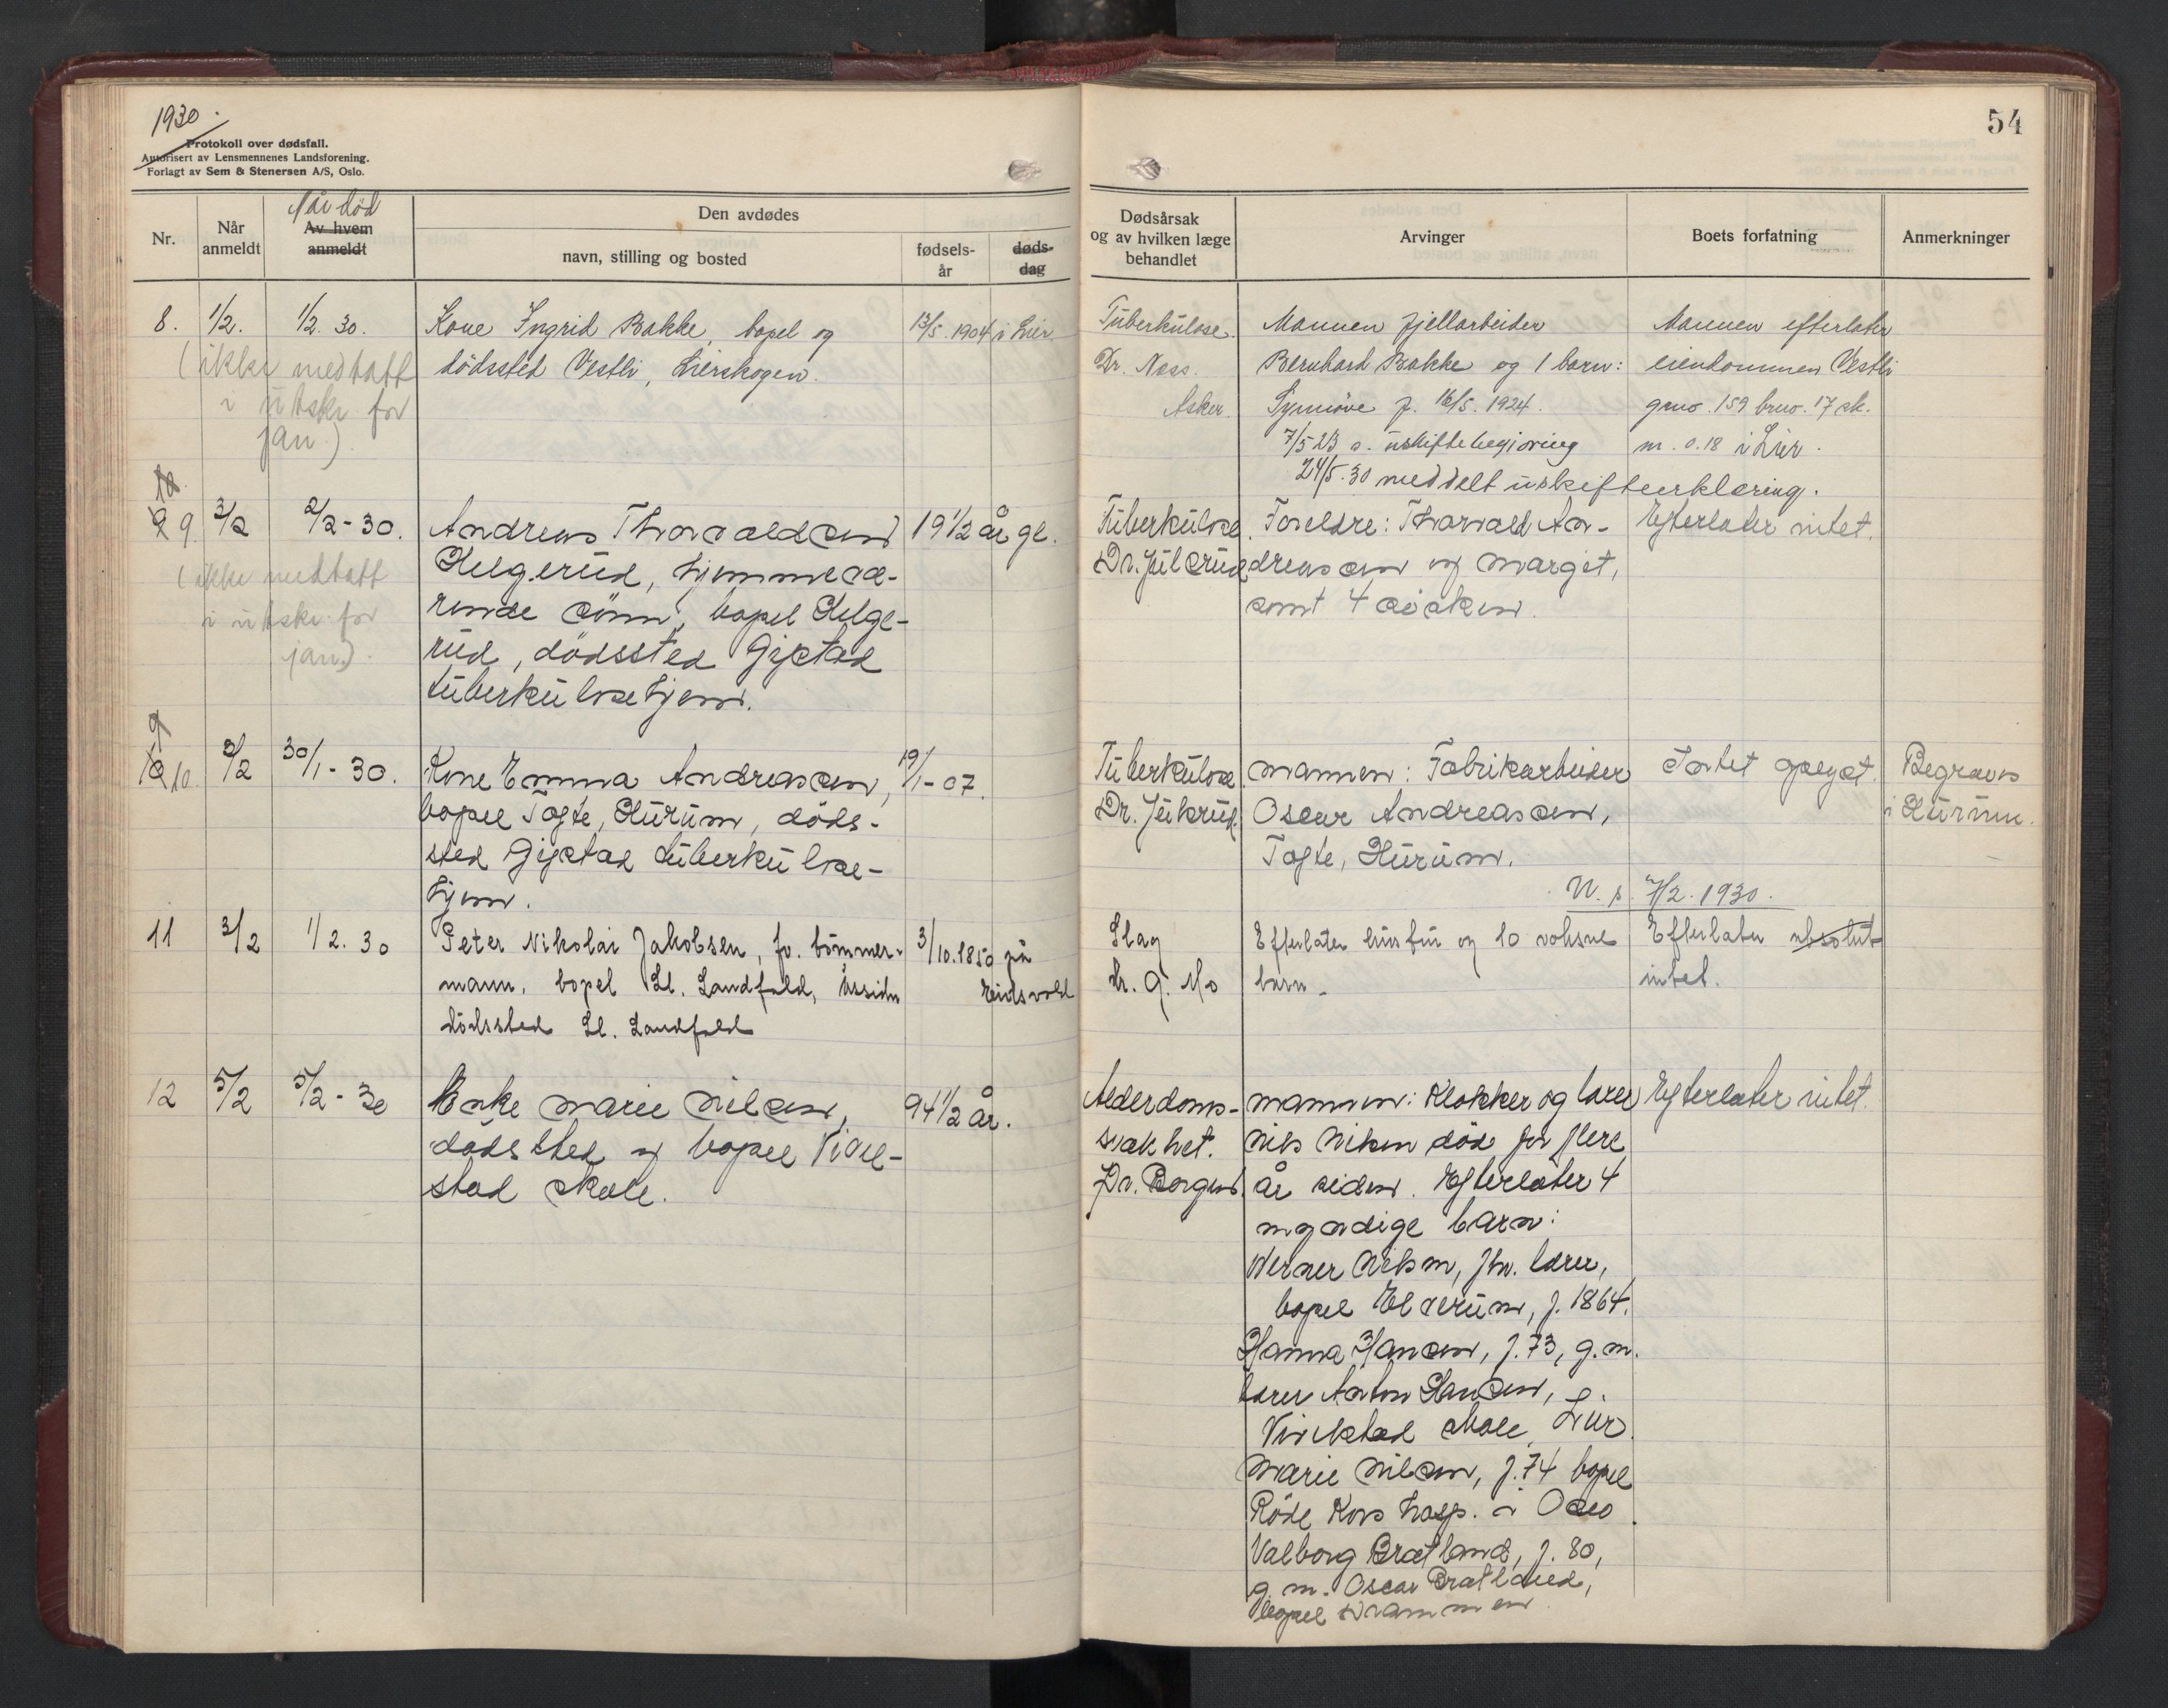 1930.
Protokoll over dødsfall.
Autorisert av Lensmennenes Landsforening.
Forlagt av Sem & Stenersen A/S, Oslo.
54
Nr.
Når anmeldt
Når død
Av hvem anmeldt
Den avdødes
navn, stilling og bosted
fødsels-år
døds-dag
Dødsårsak og av hvilken læge behandlet
Arvinger
Boets forfatning
Anmerkninger
8. 1/2. 1/2. 30. Kone Ingrid Bakke, bopel og 13/5. 1904 i Lier.
(ikke medtatt dödssted Vestli, Lierskogen.
i utskr for
jan.)
Tuberkulose.
Dr. Næss.
Asker.
Mannen fjellarbeider
Bernhard Bakke og 1 barn:
Synnöve f. 16/5. 1924.
7/5 23 o. uskiftebegjæring
24/5. 30 meddelt uskifteerklæring.
Mannen efterlater
eiendommen Vestli
gno. 159 bno. 17 sk.
m. 0.18 i Lier.
10.
9 9 3/2 2/2-30. Andreas Thorvaldsen 19 1/2 år gl.
(ikke medtatt Helgerud, hjemmevæ-
i utskr. for rende sönn, bopel Helge-
jan.) rud, dödssted Gjestad
tuberkulosehjem.
Tuberkulose.
Dr. Julsrud
Foreldre: Thorvald An-
dreassen og Margit,
samt 4 sösken.
Efterlater intet.
9
10 10. 3/2 30/1-30. Kone Emma Andreassen, 19/1-07.
bopel Tofte, Hurum, döds-
sted Gjestad tuberkulose-
hjem.
Tuberkulose
Dr. Julsrud.
Mannen: Fabrikarbeider
Oscar Andreassen,
Tofte, Hurum.
Intet opgjet.
Begraves
i Hurum.
U. s. 7/2. 1930.
11 3/2 1/2. 30 Peter Nikolai Jakobsen, fv. tömmer- 3/10. 1850 på
mann, bopel Ll. Landfald, Åssiden Eidsvold
dödssted Ll. Landfald
Slag
Dr. G. Mo
Efterlater hustru og 10 voksne
barn.
Efterlater absolut
intet.
12 5/2 5/2-30 Enke Marie Nilsen, 94 1/2 år.
dödssted og bopel Vivel-
stad skole.
Alderdoms-
svakhet.
Dr. Borgen.
Mannen: Klokker og lærer
Nils Nilsen död for flere
år siden. Efterlater 4
myndige barn:
Werner Nilsen, fhv. lærer,
bopel Elverum, f. 1864.
Hanna Hansen, f. 73, g. m.
lærer Anton Hansen,
Vivelstad skole, Lier.
Marie Nilsen, f. 74 bopel
Röde Kors hosp. i Oslo.
Valborg Bratland, f. 80,
g. m. Oscar Bratland,
bopel Drammen.
Efterlater intet.